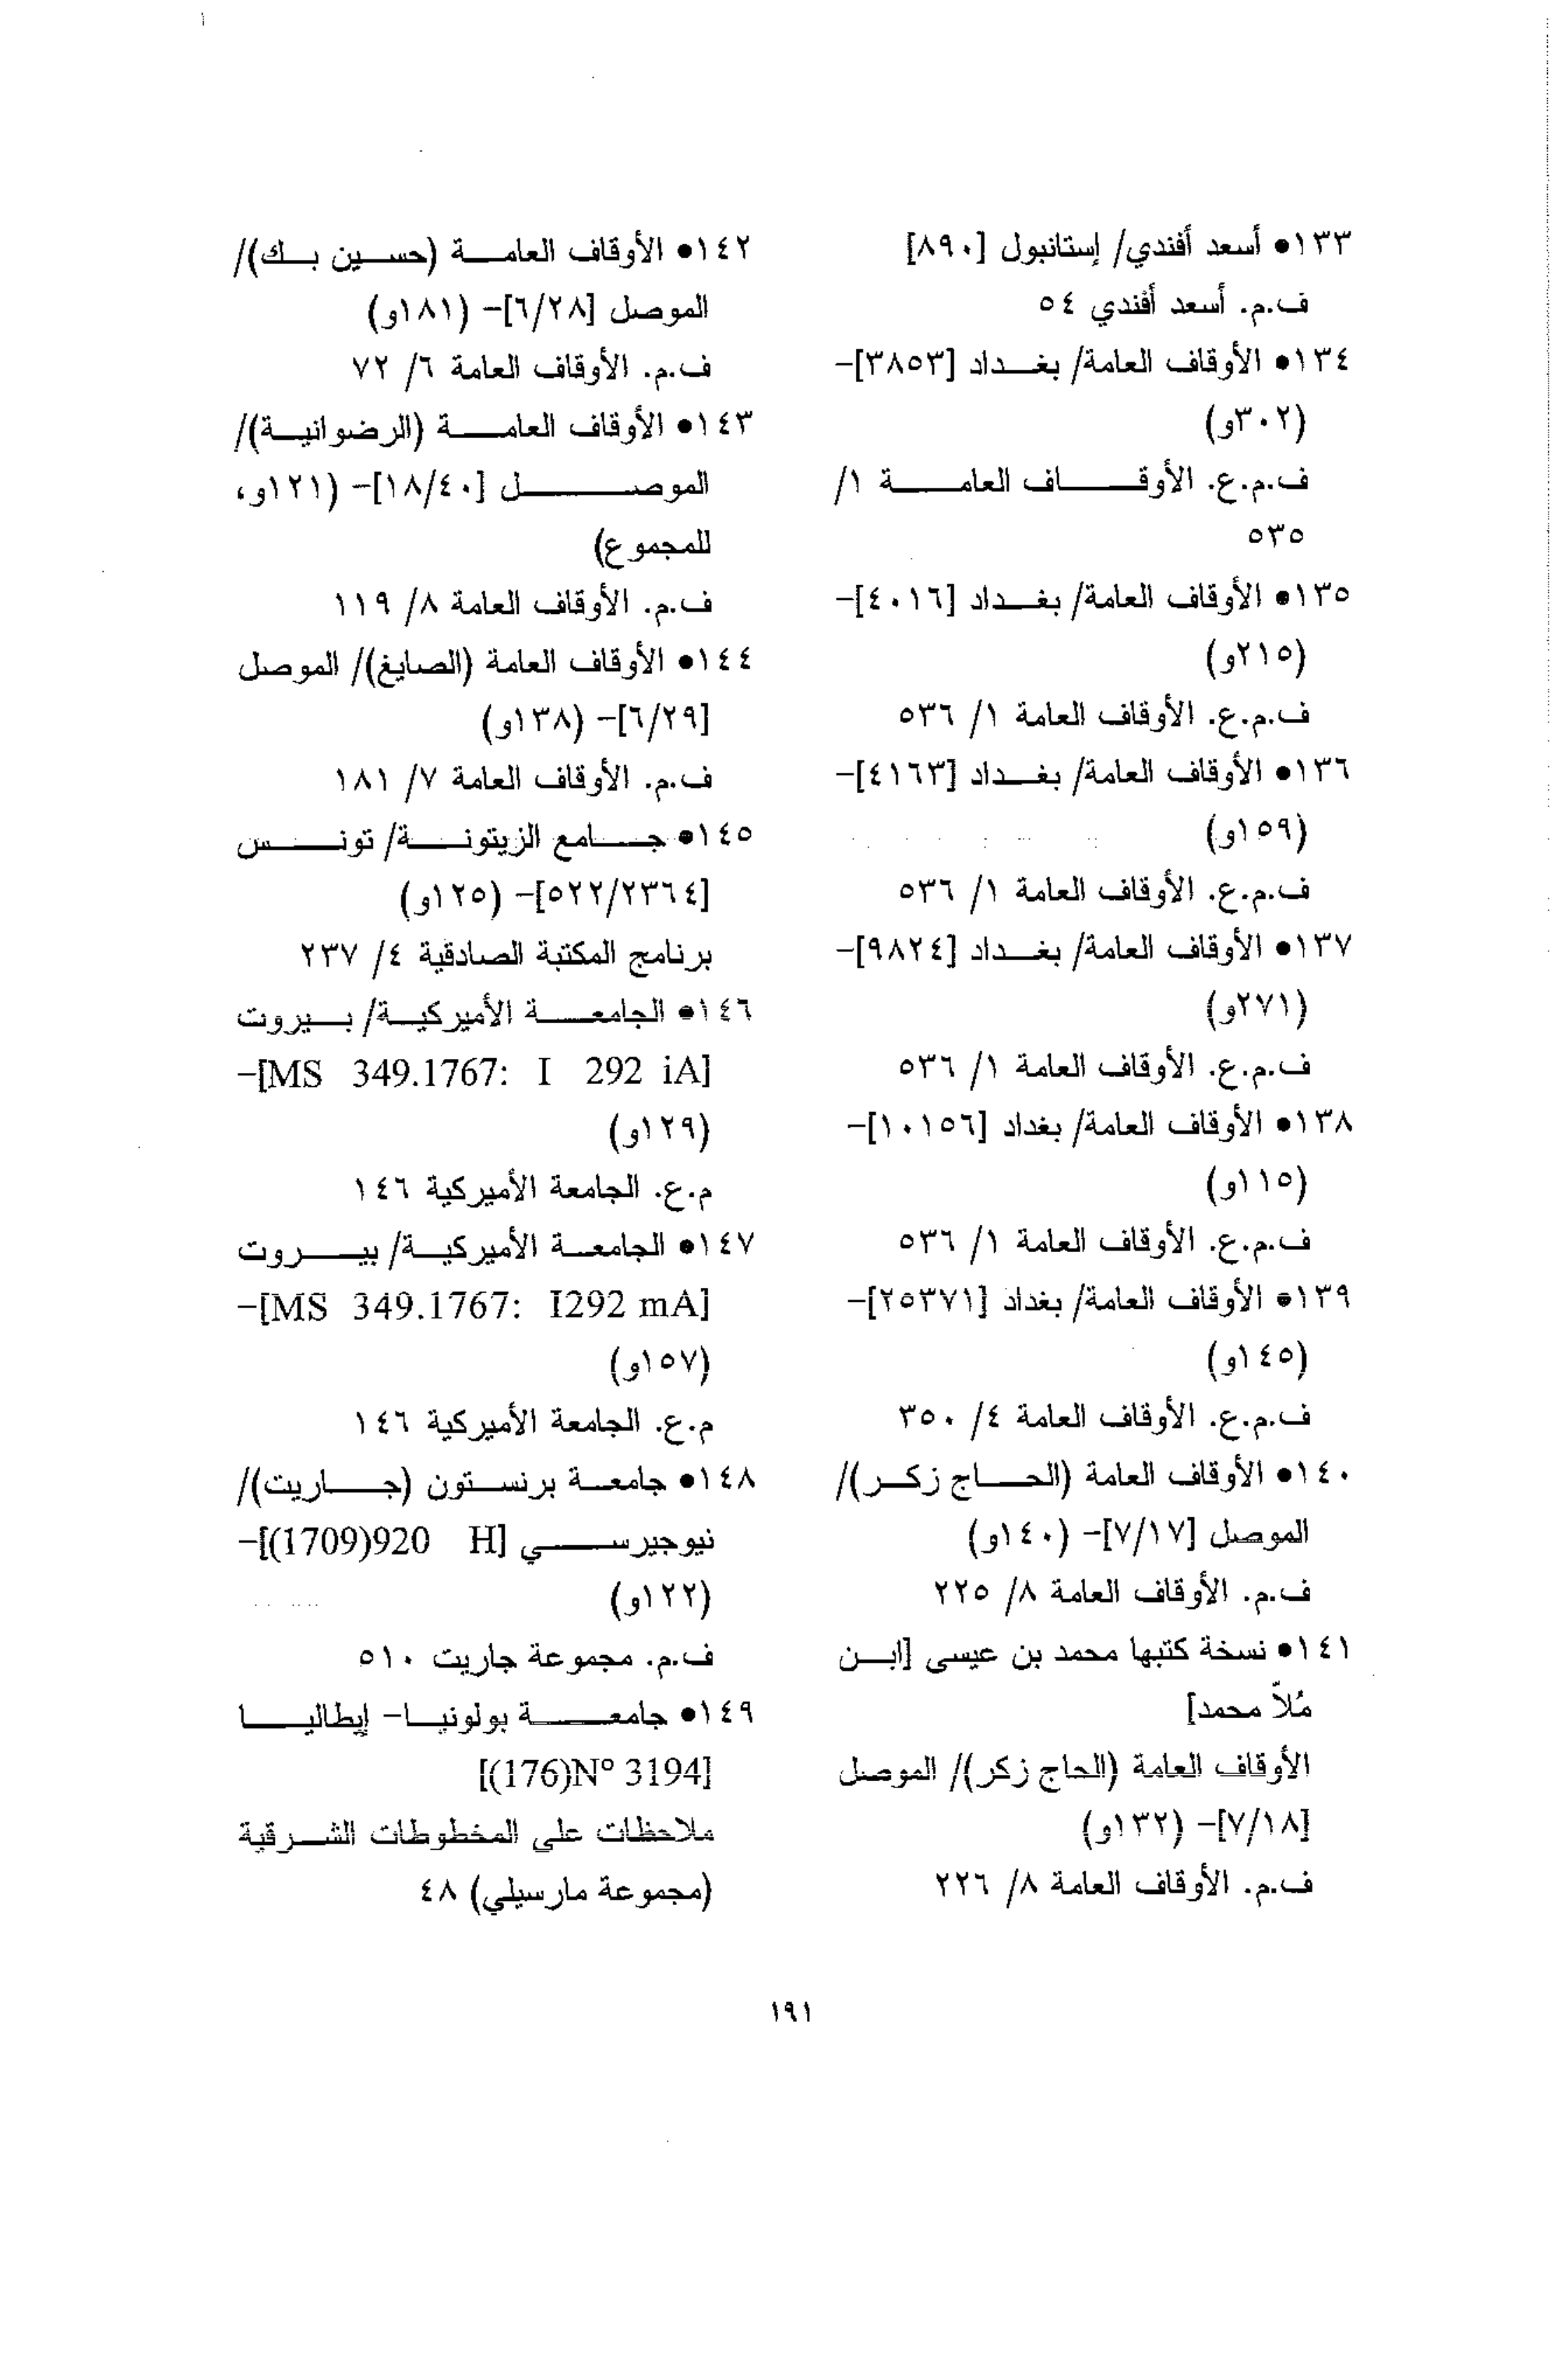 ١٣٣• أسعد أفندي/ إستانبول [٨٩٠]
ف.م. أسعد أفندي ٥٤
١٣٤• الأوقاف العامة/ بغداد [٣٨٥٣]-
(٣٠٢و)
ف.م.ع. الأوقاف العامة ١/
٥٣٥
١٣٥• الأوقاف العامة/ بغداد [٤٠١٦]-
(٢١٥و)
ف.م.ع. الأوقاف العامة ١/ ٥٣٦
١٣٦• الأوقاف العامة/ بغداد [٤١٦٣]-
(١٥٩و)
ف.م.ع. الأوقاف العامة ١/ ٥٣٦
١٣٧• الأوقاف العامة/ بغداد [٩٨٢٤]-
(٢٧١و)
ف.م.ع. الأوقاف العامة ١/ ٥٣٦
١٣٨• الأوقاف العامة/ بغداد [١٠١٥٦]-
(١١٥و)
ف.م.ع. الأوقاف العامة ١/ ٥٣٦
١٣٩• الأوقاف العامة/ بغداد [٢٥٣٧١]-
(١٤٥و)
ف.م.ع. الأوقاف العامة ٤/ ٣٥٠
١٤٠• الأوقاف العامة (الحاج زكر)/
الموصل [٧/١٧]- (١٤٠و)
ف.م. الأوقاف العامة ٨/ ٢٢٥
١٤١• نسخة كتبها محمد بن عيسى [ابن
مُلاّ محمد]
الأوقاف العامة (الحاج زكر)/ الموصل
[٧/١٨]- (١٣٢و)
ف.م. الأوقاف العامة ٨/ ٢٢٦
١٤٢• الأوقاف العامة (حسين بك)/
الموصل [٦/٢٨]- (١٨١و)
ف.م. الأوقاف العامة ٦/ ٧٢
١٤٣• الأوقاف العامة (الرضوانية)/
الموصل [١٨/٤٠]- (١٢١و،
للمجموع)
ف.م. الأوقاف العامة ٨/ ١١٩
١٤٤• الأوقاف العامة (الصايغ)/ الموصل
[٦/٢٩]- (١٣٨و)
ف.م. الأوقاف العامة ٧/ ١٨١
١٤٥• جامع الزيتونة/ تونس
[٥٢٢/٢٣٦٤]- (١٢٥و)
برنامج المكتبة الصادقية ٤/ ٢٣٧
١٤٦• الجامعة الأميركية/ بيروت
[MS 349.1767: I 292 iA]-
(١٢٩و)
م.ع. الجامعة الأميركية ١٤٦
١٤٧• الجامعة الأميركية/ بيروت
[MS 349.1767: I292 mA]-
(١٥٧و)
م.ع. الجامعة الأميركية ١٤٦
١٤٨• جامعة برنستون (جاريت)/
نيوجيرسي [(1709)920 H]-
(١٢٢و)
ف.م. مجموعة جاريت ٥١٠
١٤٩• جامعة بولونيا- إيطاليا
[(176)N° 3194]
ملاحظات على المخطوطات الشرقية
(مجموعة مارسيلي) ٤٨
١٩١